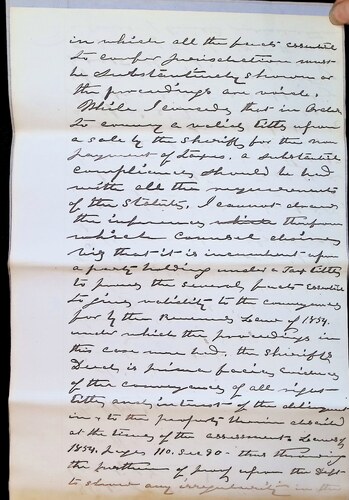 in which all the facts essential
to confer jurisdiction must
be substantively shown or
the proceedings are void.
While I concede that in order
to convey a valid title upon
a sale by the Sheriff for the non
payment of taxes, a substantial
compliance should be had
with all the requirements
of the Statute, I cannot draw
the inference which therefrom
which Counsel claims
that it is incumbent upon
a party holding under a Tax title
to prove the several facts essential
to give validity to the conveyance
for by the Revenue Law of 1854.
under which the proceedings in
this case were had, the Sheriff's
Deed is prima facie evidence
of the conveyance of all right
title and interest of the delinquent
in & to the property therein described
at the time of the assessment Laws of
1854. page 110. sec 90 - thus throwing
the burthen of proof upon the Deft
to show any irregularity in the